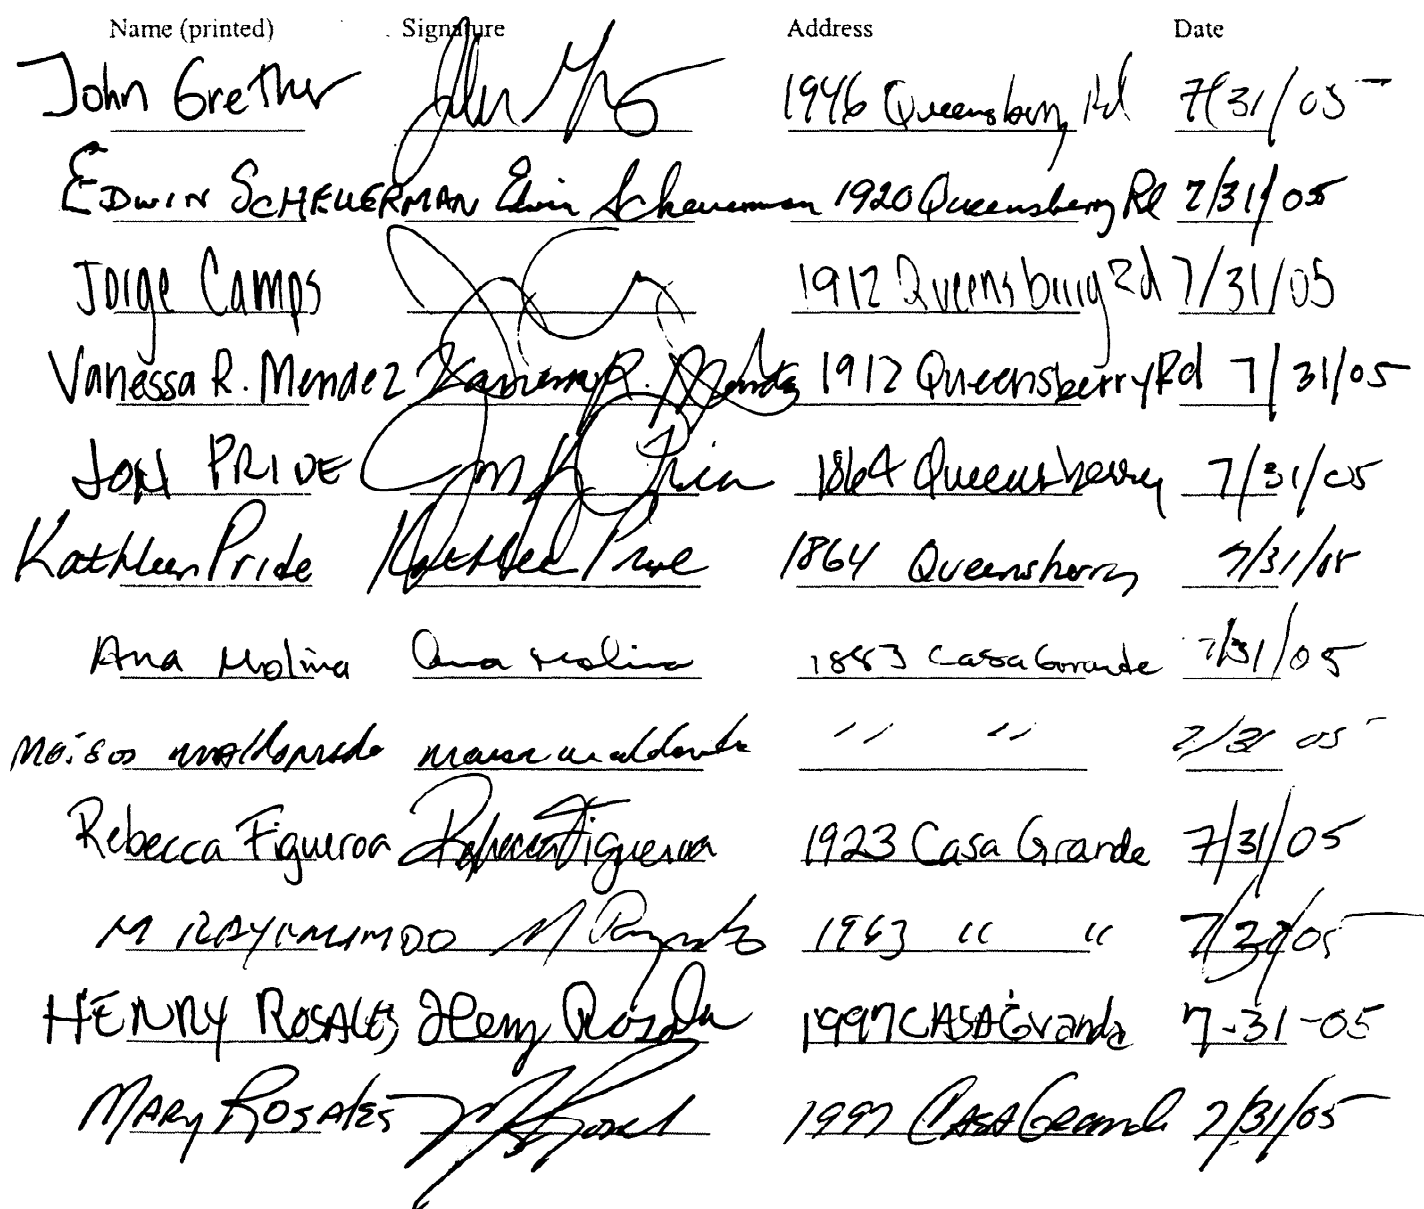 Name (printed) Signature Address Date
John Grether John 1946 Queensbury Rd 7/31/05
EDWIN SCHEUERMAN Edwin Scheuerman 1920 Queensberry Rd 7/31/05
Jorge Camps 1912 Queensburry Rd 7/31/05
Vanessa R. Mendez Vanessa R. Mendez 1912 Queensberry Rd 7/31/05
JON PRIDE Jon Pride 1864 Queensberry 7/31/05
Kathleen Pride Kathleen Pride 1864 Queensberry 7/31/05
Ana Molina Ana Molina 1883 Casa Grande 7/31/05
Maldonado Maldonado " " 7/31 05
Rebecca Figueroa Rebecca Figueroa 1923 Casa Grande 7/31/05
M RAYMUNDO M Raymundo 1963 " " 7/31/05
HENRY ROSALES Henry Rosales 1997 CASA Grande 7-31-05
MARY ROSALES 1997 CASA Grande 7/31/05